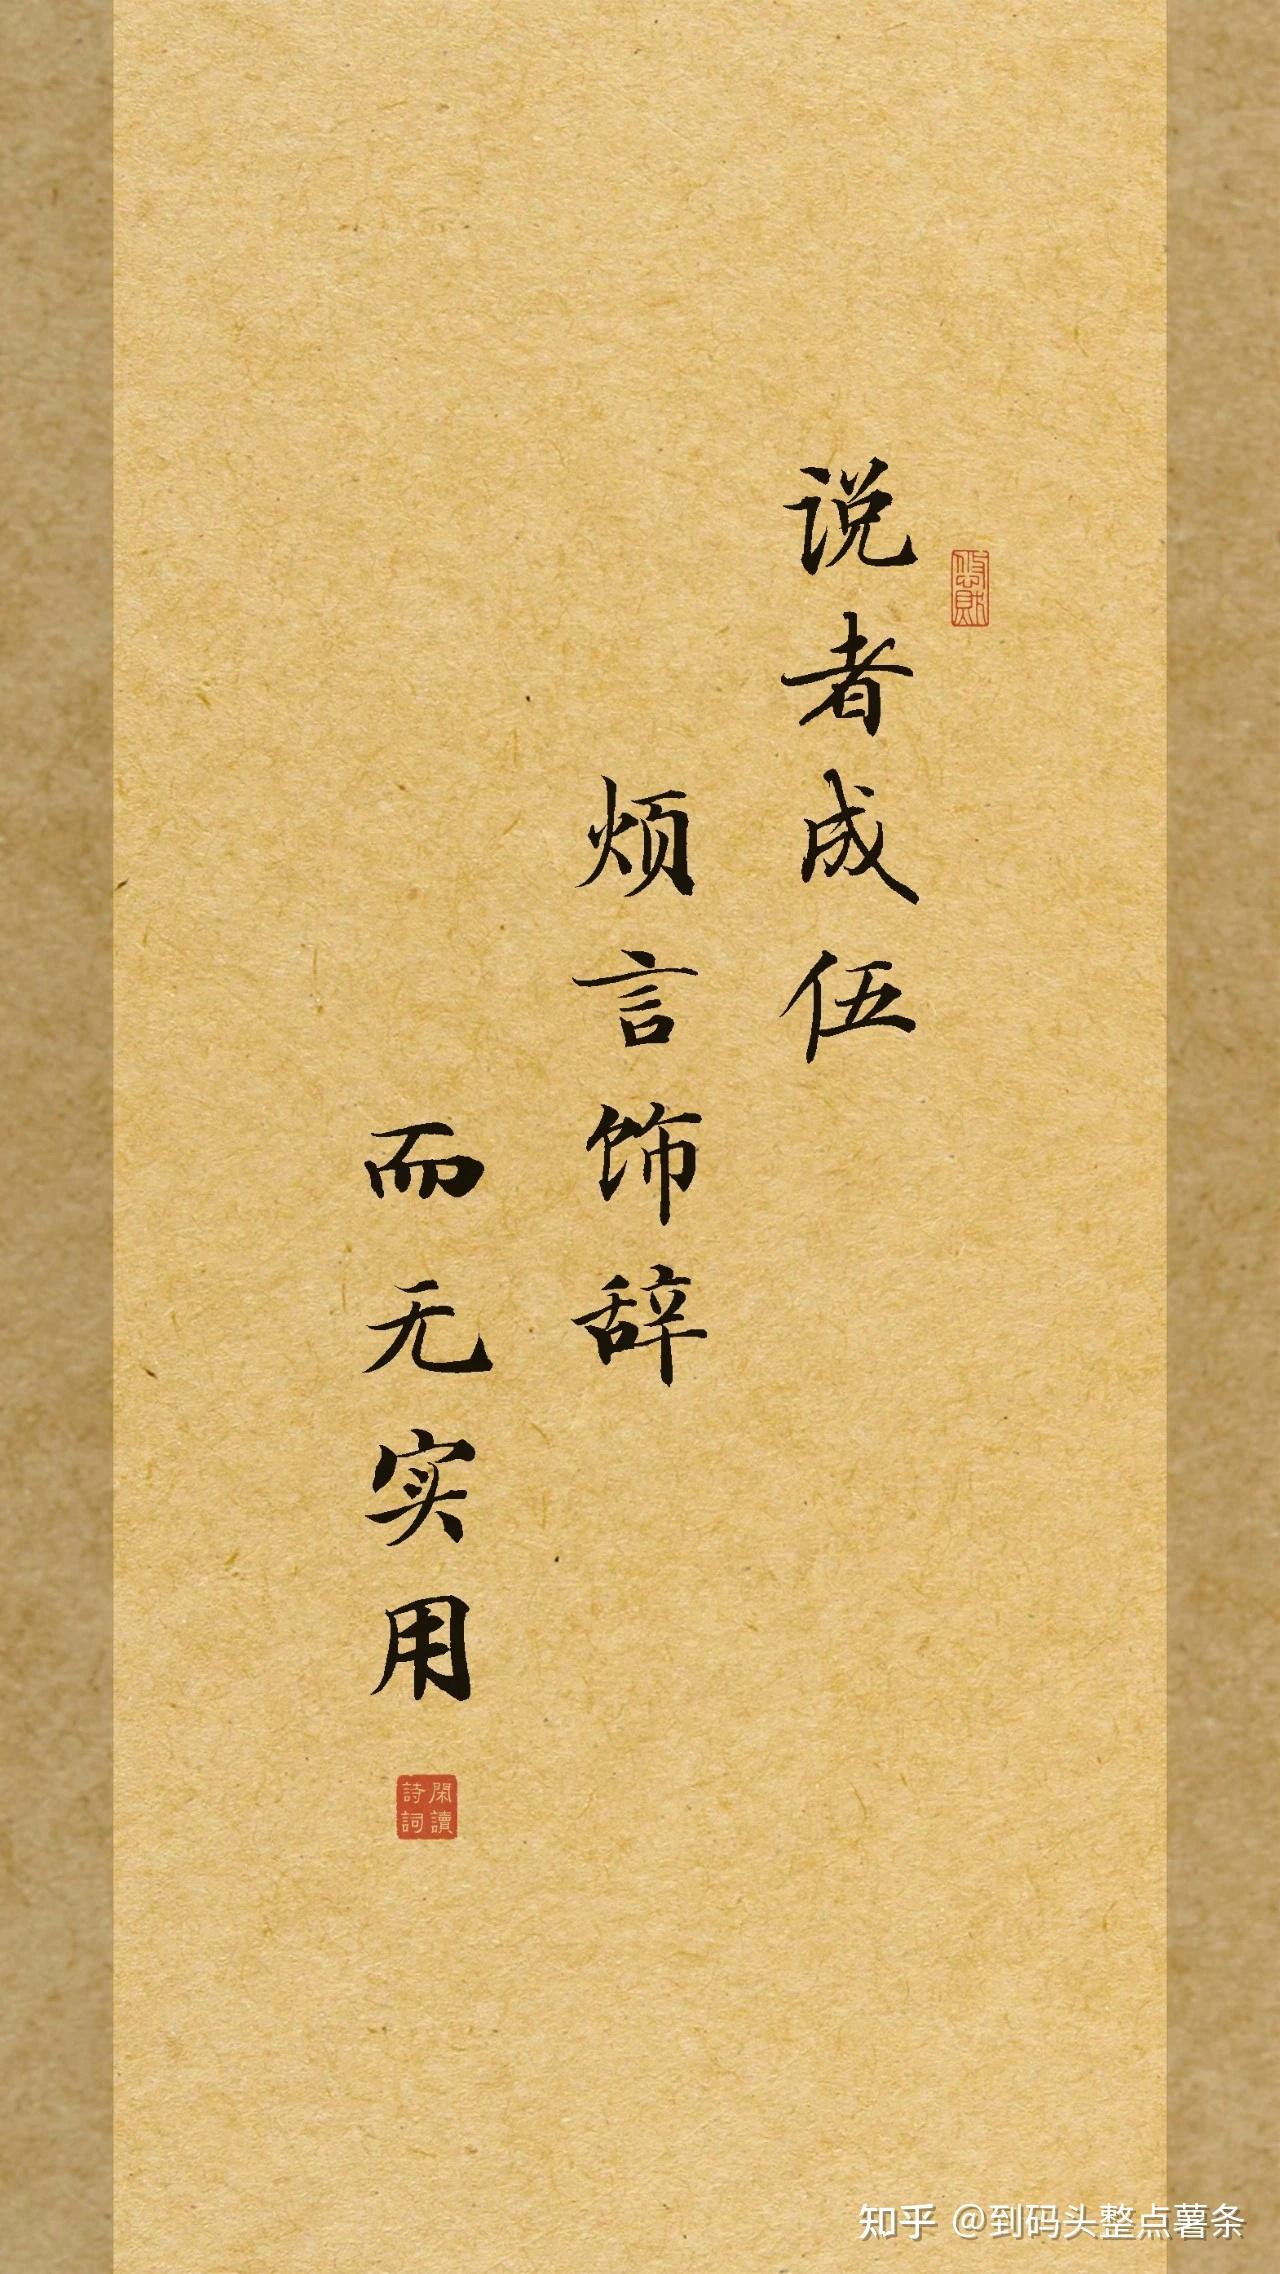 说者成伍
烦言饰辞
而无实用
閑讀
詩詞
知乎 @到码头整点薯条